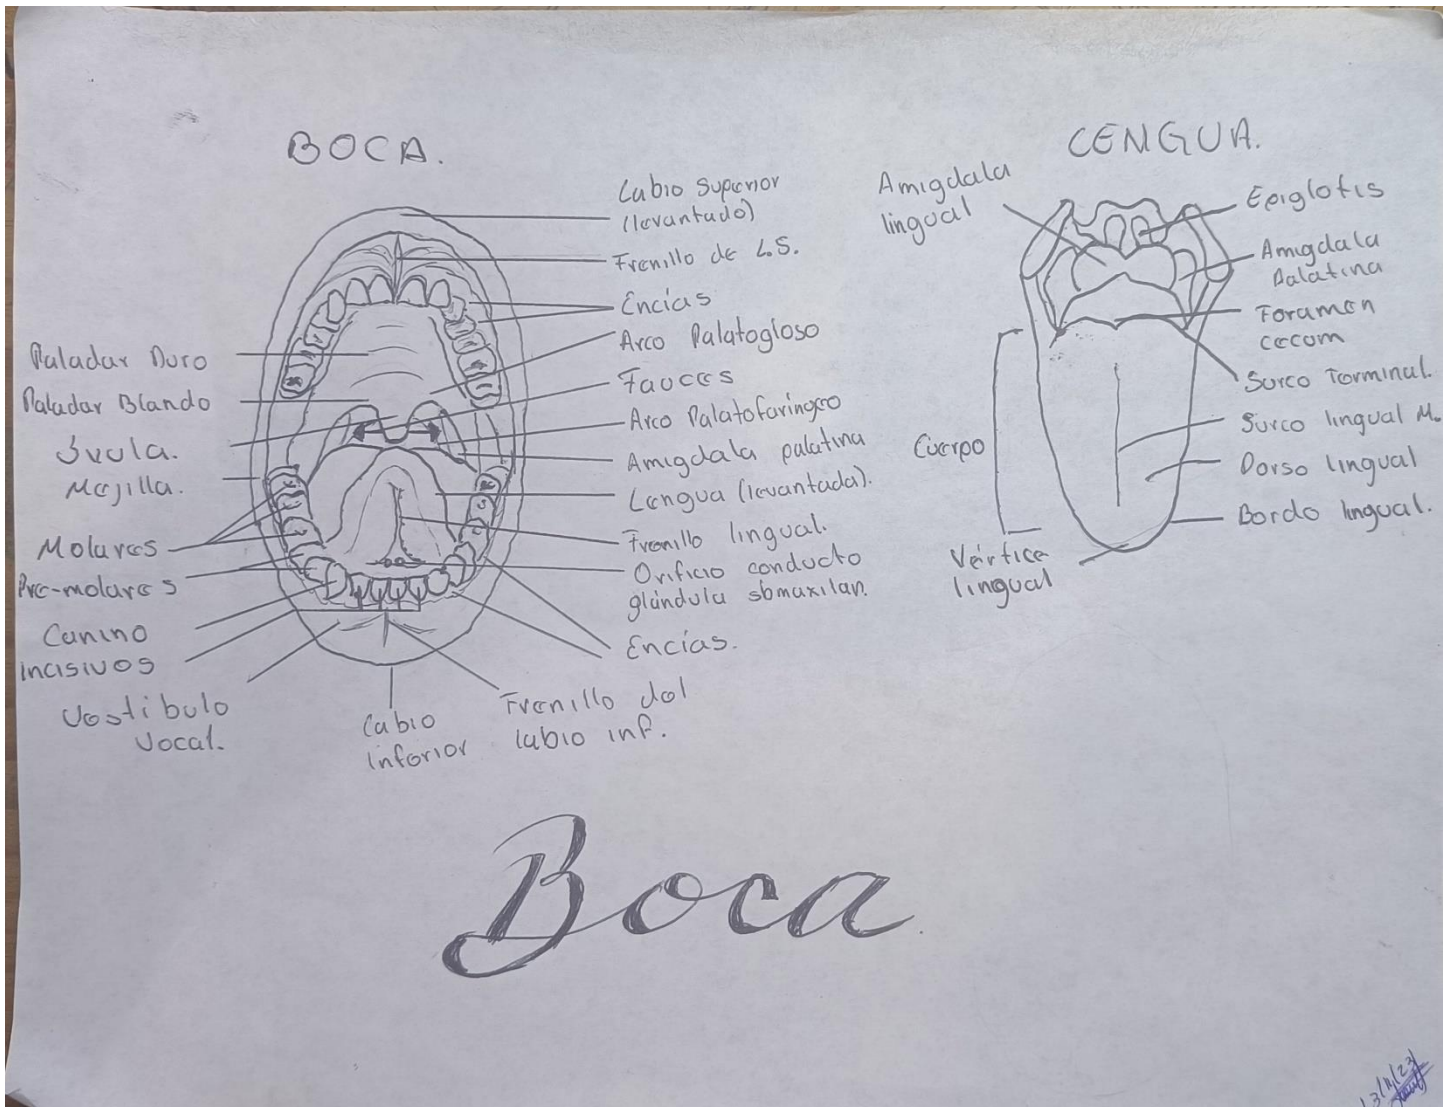 BOCA.
Labio Superior
(levantado)
Frenillo de L.S.
Encías
Arco Palatogloso
Fauces
Arco Palatofaríngeo
Amigdala palatina
Lengua (levantada).
Frenillo lingual.
Orificio conducto
glándula sbmaxilar.
Encías.
Paladar Duro
Paladar Blando
Úvula.
Mejilla.
Molares
Pre-molares
Canino
incisivos
Vestibulo
Vocal.
Labio
inferior
Frenillo del
labio inf.
LENGUA.
Amigdala
lingual
Epiglotis
Amigdala
Palatina
Foramen
cecom
Surco Terminal.
Surco lingual M.
Dorso lingual
Bordo lingual.
Cuerpo
Vértice
lingual
Boca